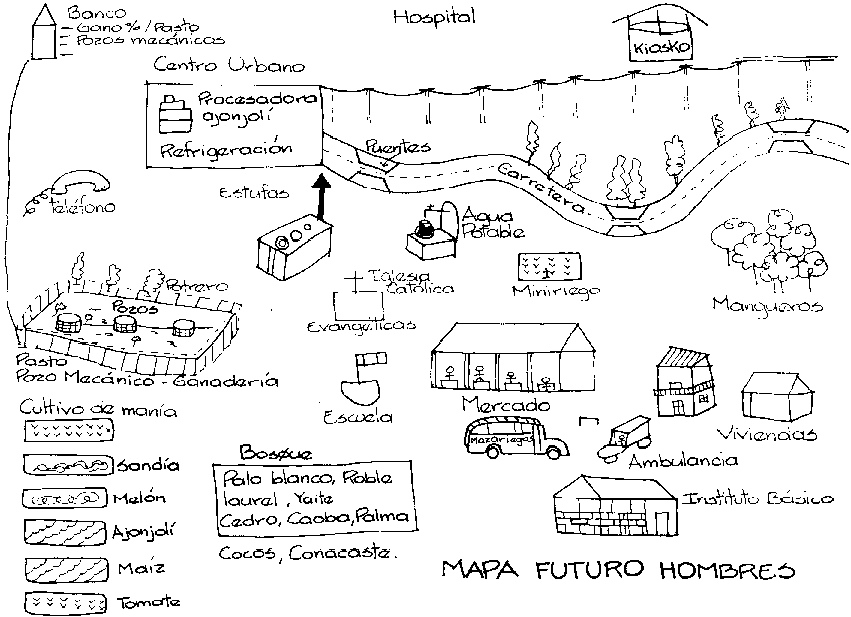 Banco
Gano %/Pasto
Pozos mecánicos
Hospital
Kiosko
Centro Urbano
Procesadora
ajonjolí
Refrigeración
Puentes
Carretera
Teléfono
Estufas
Agua
Potable
Potrero
Pozos
Iglesia
Católica
Evangélicas
Miniriego
Mangueros
Pasto
Pozo Mecánico - Ganadería
Escuela
Mercado
Mazariegos
Viviendas
Ambulancia
Cultivo de manía
Sandía
Melón
Ajonjolí
Maíz
Tomate
Bosque
Palo blanco, Roble
laurel, Yaite
Cedro, Caoba, Palma
Cocos, Conacaste.
Instituto Básico
MAPA FUTURO HOMBRES